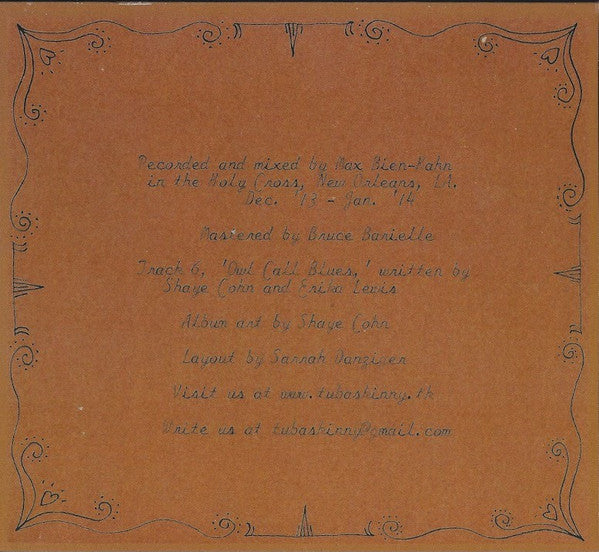 Recorded and mixed by Max Bien-Kahn
in the Holy Cross, New Orleans, LA.
Dec. '13 - Jan. '14
Mastered by Bruce Barielle
Track 6, 'Owl Call Blues,' written by
Shaye Cohn and Erika Lewis
Album art by Shaye Cohn
Layout by Sarrah Danziger
Visit us at www.tubaskinny.tk
Write us at tubaskinny@gmail.com